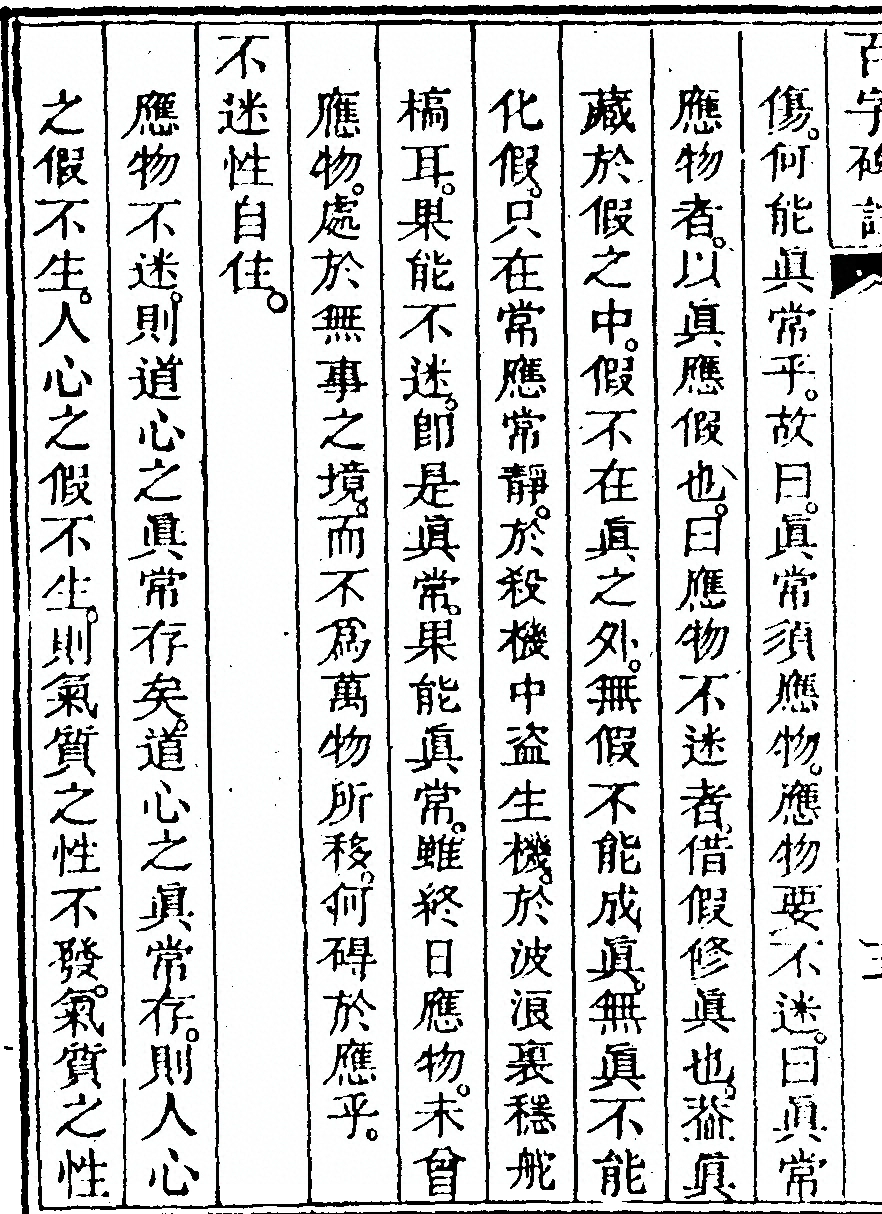 百字碑註
傷。何能眞常乎。故曰。眞常須應物。應物要不迷。曰眞常
應物者。以眞應假也。曰應物不迷者。借假修眞也。葢眞
藏於假之中。假不在眞之外。無假不能成眞。無眞不能
化假。只在常應常靜。於殺機中盜生機。於波浪裏穩舵
槁耳。果能不迷。卽是眞常。果能眞常。雖終日應物。未曾
應物。處於無事之境。而不爲萬物所移。何碍於應乎。
不迷性自住。
應物不迷。則道心之眞常存矣。道心之眞常存。則人心
之假不生。人心之假不生。則氣質之性不發。氣質之性